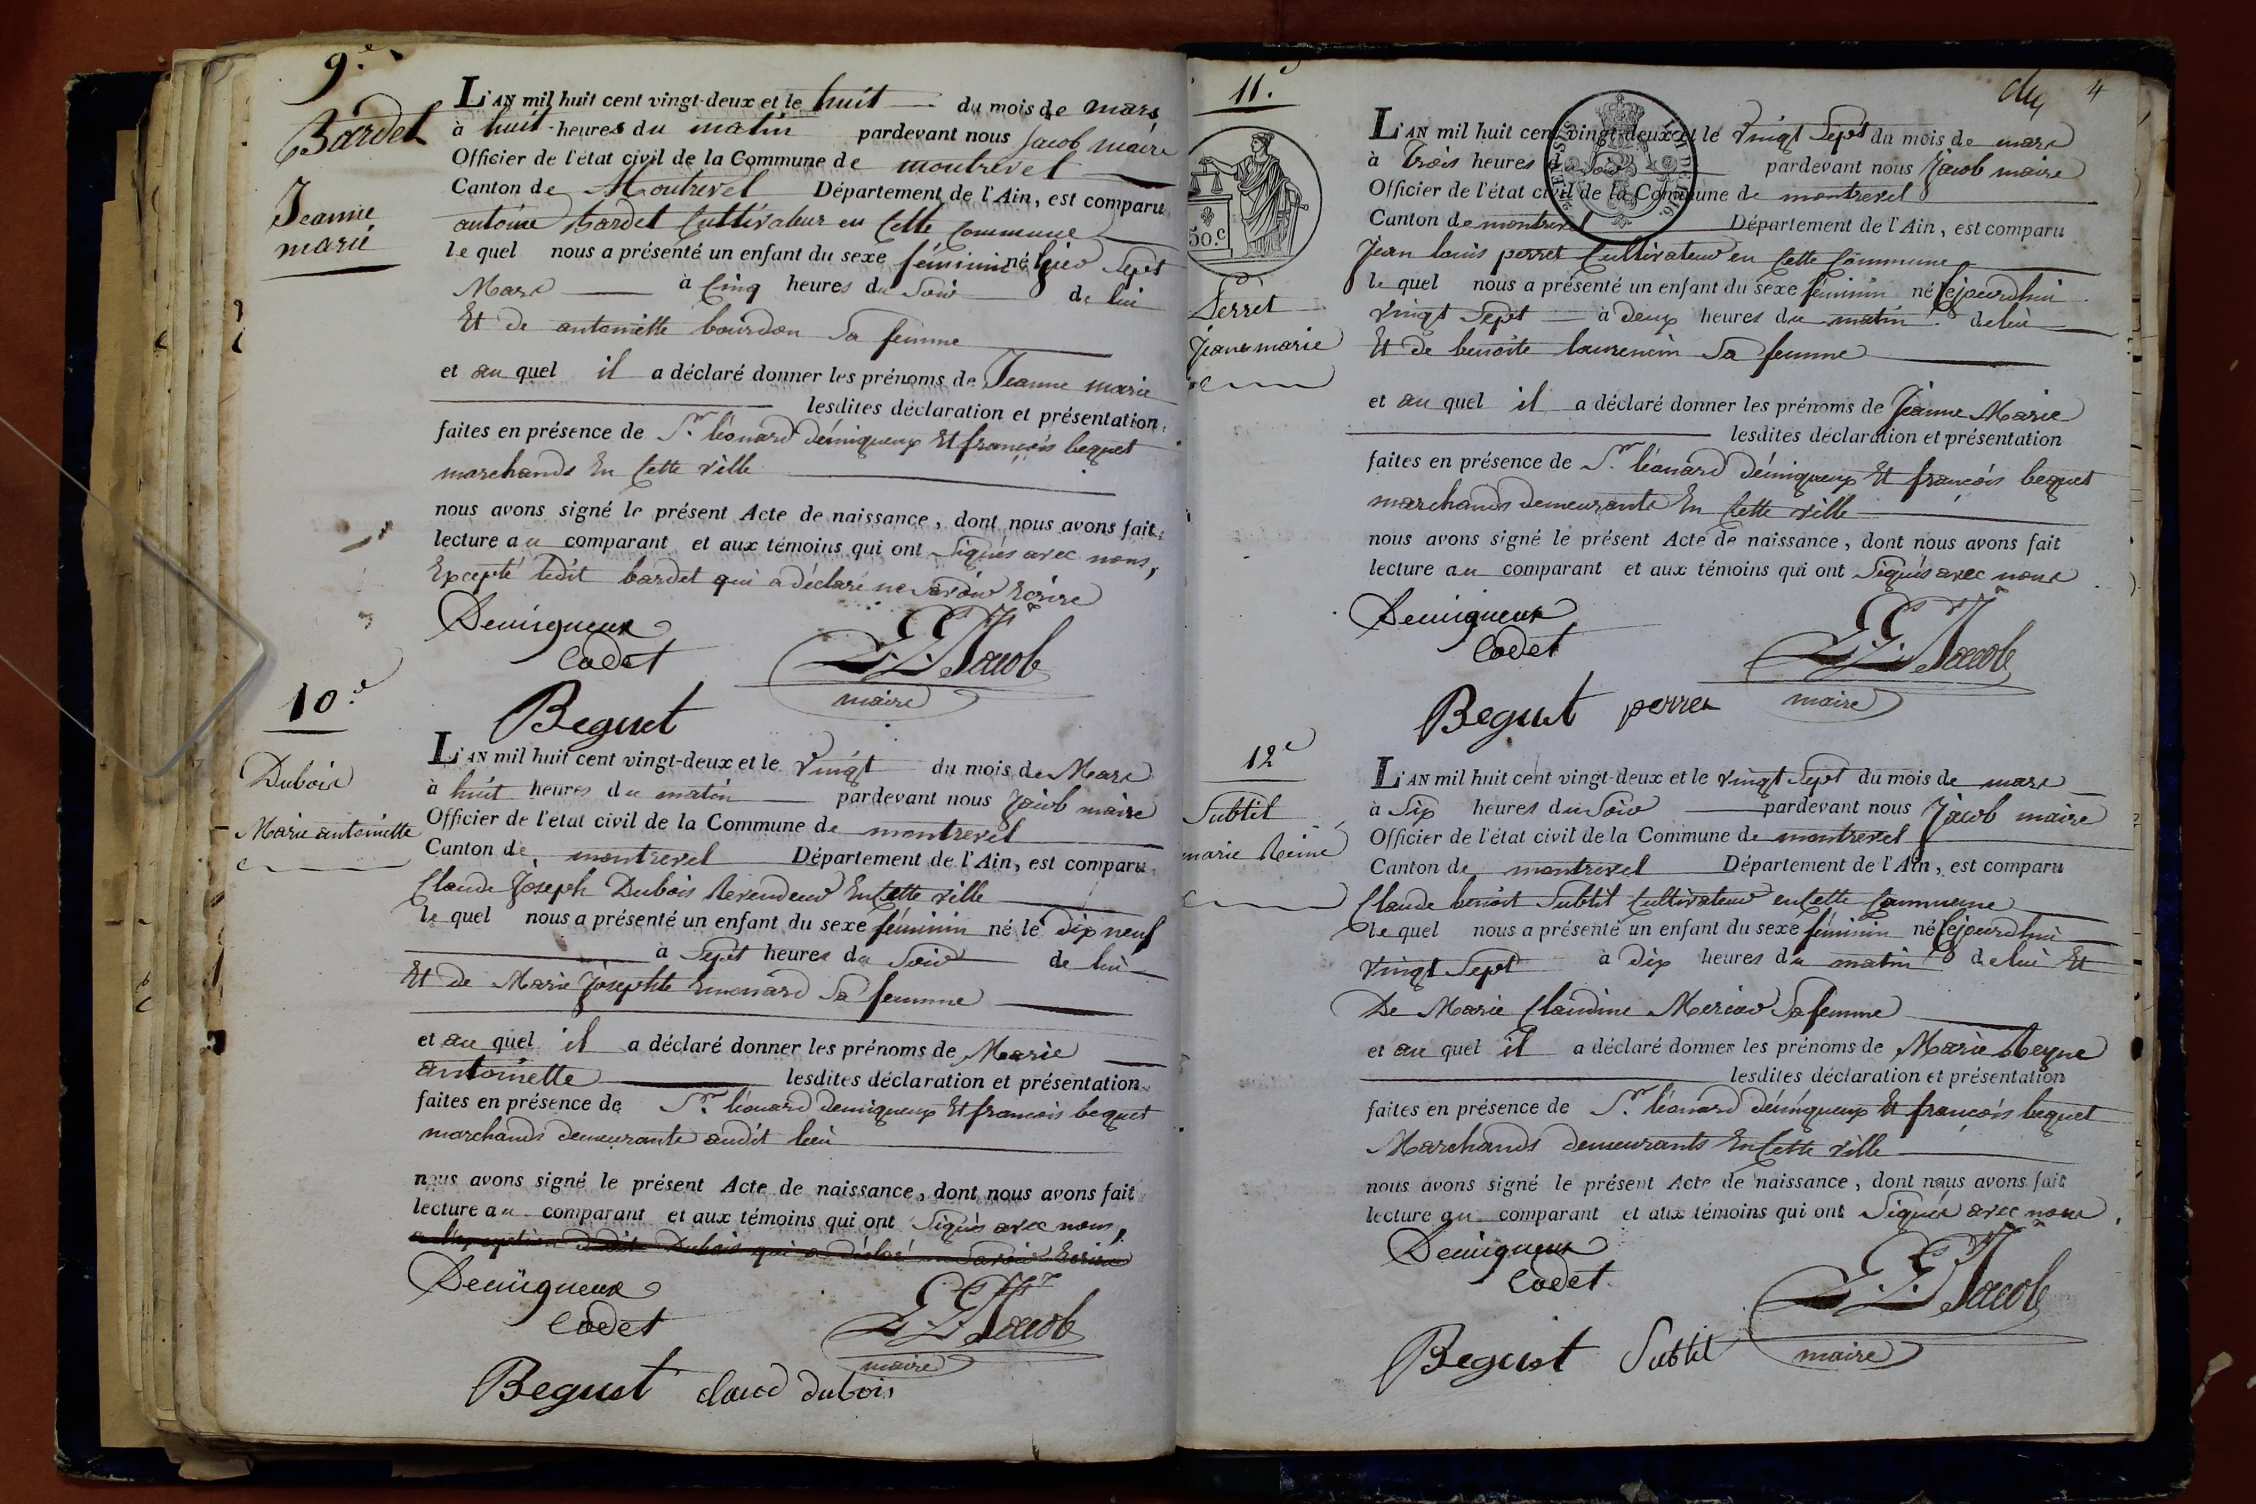 9.e
Bardet
Jeanne
marie
L'AN mil huit cent vingt-deux et le huit du mois de mars
à huit heures du matin pardevant nous Jacob maire
Officier de l'état civil de la Commune de montrevel
Canton de Montrevel Département de l'Ain, est comparu
antoine bardet Cultivateur en Cette Commune
le quel nous a présenté un enfant du sexe féminin né hier Sept
Mars à Cinq heures du Soir de lui
Et de antoinette bourdon Sa femme
et au quel il a déclaré donner les prénoms de Jeanne marie
lesdites déclaration et présentation
faites en présence de Sr. léonard démiqueux Et françois bequet
marchands En Cette ville
nous avons signé le présent Acte de naissance, dont nous avons fait
lecture au comparant et aux témoins qui ont Signés avec nous,
Excepté ledit bardet qui a déclaré ne Savoir Ecrire
Demiqueux
Cadet
Jacob
maire
Beguet
10.e
Dubois
Marie antoinette
L'AN mil huit cent vingt-deux et le vingt du mois de Mars
à huit heures du matin pardevant nous Jacob maire
Officier de l'état civil de la Commune de montrevel
Canton de montrevel Département de l'Ain, est comparu
Claude Joseph Dubois Revendeur En Cette ville
le quel nous a présenté un enfant du sexe féminin né le dix neuf
à Sept heures du Soir de lui
Et de Marie Josephte Emonard Sa femme
et au quel il a déclaré donner les prénoms de Marie
antoinette lesdites déclaration et présentation
faites en présence de Sr. léonard demiqueux Et francois bequet
marchands demeurants audit lieu
nous avons signé le présent Acte de naissance, dont nous avons fait
lecture au comparant et aux témoins qui ont Signés avec nous,
a l'exception dudit Dubois qui a déclaré ne Savoir Ecrire
Demiqueux
Cadet
Jacob
maire
Beguet claud dubois
4
11.e
50.c
Perret
Jeane marie
L'AN mil huit cent vingt-deux et le vingt Sept du mois de mars
à Trois heures du Soir pardevant nous Jacob maire
Officier de l'état civil de la Commune de montrevel
Canton de montrevel Département de l'Ain, est comparu
Jean louis perret Cultivateur en Cette Commune
le quel nous a présenté un enfant du sexe féminin né Cejourdhui
vingt Sept à deux heures du matin de lui
Et de benoite laurencin Sa femme
et au quel il a déclaré donner les prénoms de Jeanne Marie
lesdites déclaration et présentation
faites en présence de Sr. léonard démiqueux Et françois bequet
marchands demeurants En Cette ville
nous avons signé le présent Acte de naissance, dont nous avons fait
lecture au comparant et aux témoins qui ont Signés avec nous
Demiqueux
Cadet
Jacob
maire
Beguet perret
12.e
Subtil
marie Reine
L'AN mil huit cent vingt-deux et le vingt Sept du mois de mars
à Six heures du Soir pardevant nous Jacob maire
Officier de l'état civil de la Commune de montrevel
Canton de montrevel Département de l'Ain, est comparu
Claude benoit Subtil Cultivateur en Cette Commune
le quel nous a présenté un enfant du sexe féminin né Cejourdhui
vingt Sept à dix heures du matin de lui Et
De Marie Claudine Sa femme
et au quel il a déclaré donner les prénoms de Marie Reyne
lesdites déclaration et présentation
faites en présence de Sr. léonard démiqueux Et françois bequet
Marchands demeurants En Cette ville
nous avons signé le présent Acte de naissance, dont nous avons fait
lecture au comparant et aux témoins qui ont Signés avec nous,
Demiqueux
Cadet
Jacob
maire
Beguet Subtil